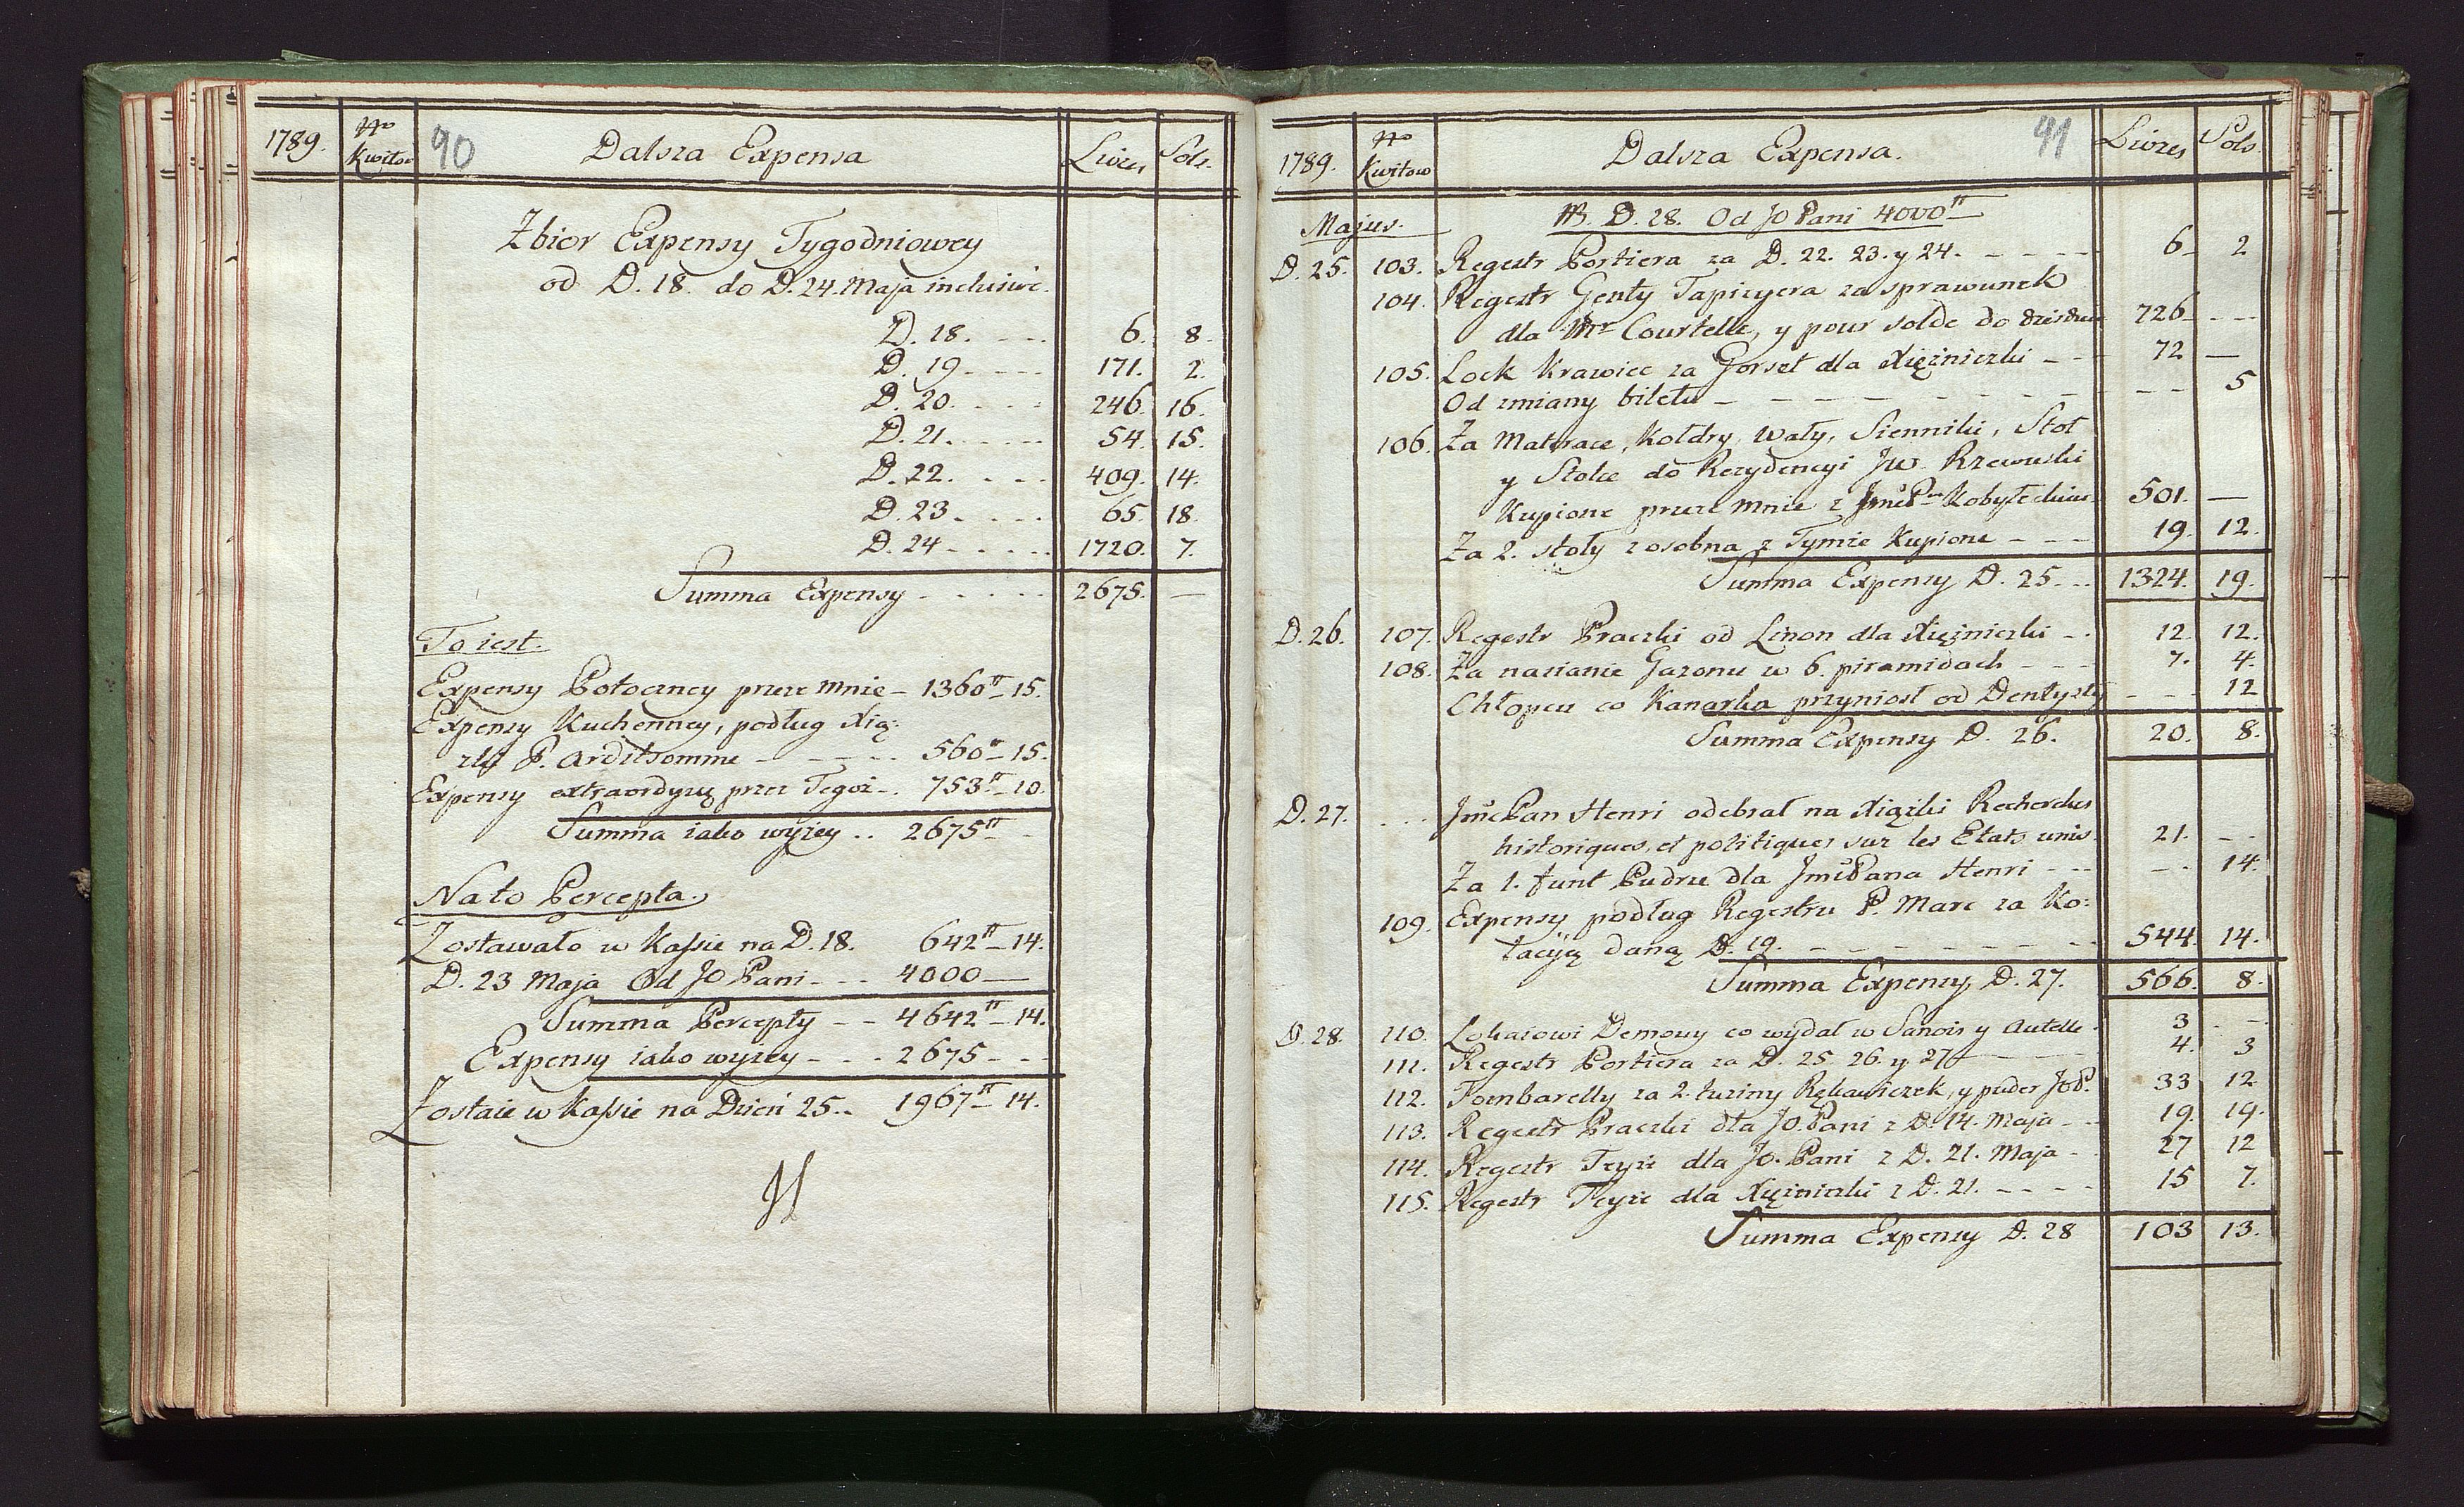 1789. No Kwitow 90 Dalsza Expensa Livres Sols.
Zbior Expensy Tygodniowey
od D. 18. do D. 24. Maja inclusive.
D. 18. 6. 8.
D. 19 171. 2.
D. 20. 246. 16.
D. 21. 54. 15.
D. 22. 409. 14.
D. 23 65. 18.
D. 24 1720. 7.
Summa Expensy 2675. —
To iest.
Expensy Potoczney przez mnie – 1360tt – 15.
Expensy Kuchenney, podług Xią:
zki P. Arditsomme 560tt – 15.
Expensy extraordyną przez Tegoż 753tt – 10.
Summa iako wyżey .. 2675tt –
Na to Percepta.
Zostawało w Kassie na D. 18. 642tt – 14.
D. 23 Maja Od JO Pani 4000 —
Summa Percepty – – 4642tt – 14.
Expensy iako wyżey – . . 2675 – . .
Zostaie w Kassie na Dzień 25.. 1967tt – 14.
1789. No Kwitow Dalsza Expensa. 91 Livres Sols.
Majus. D. 28. Od JO Pani 4000tt
D. 25. 103. Regestr Portiera za D. 22. 23. y 24. 6 2
104. Regestr Genty Tapicyera za sprawunek
dla Mr Courtelle, y pour solde do 726
105. Lock Krawiec za Gorset dla Xiężniczki 72 —
Od zmiany biletu 5
106. Za Materace, Kołdry, Wały, Sienniki, Stoł
y Stolce do Rezydencyi JW. Rzewuski
Kupione przez mnie z 501. —
Za 2. stoły zosobna z Tymże Kupione 19. 12.
Summa Expensy D. 25. 1324. 19.
D. 26. 107. Regestr Praczki od Linon dla Xiężniczki 12. 12.
108. Za nasianie Gazonu w 6. piramidach 7. 4.
Chłopcu co Kanarka przyniosł od Dentysty 12
Summa Expensy D. 26. 20. 8.
D. 27. JmcPan Henri odebrał na Xiązki Recherches
historiques, et politiques sur les Etats unis 21.
Za 1. funt Pudru dla JmcPana Henri 14.
109. Expensy podług Regestru P. Marc za Ko:
lacyią daną D. 19. 544. 14.
Summa Expensy D. 27. 566. 8.
D. 28. 110. Lokaiowi Demouy co wydał w Sanois y 3
111. Regestr Portiera za D. 25. 26. y 27 4. 3
112. Fombarelly za 2. tuziny Rękawiczek, y puder 33 12
113. Regestr Praczki dla JO. Pani z D. 14. Maja 19. 19.
114. Regestr Teyże dla JO. Pani z D. 21. Maja 27 12
115. Regestr Teyże dla Xiężniczki z D. 21. 15 7.
Summa Expensy D. 28 103 13.